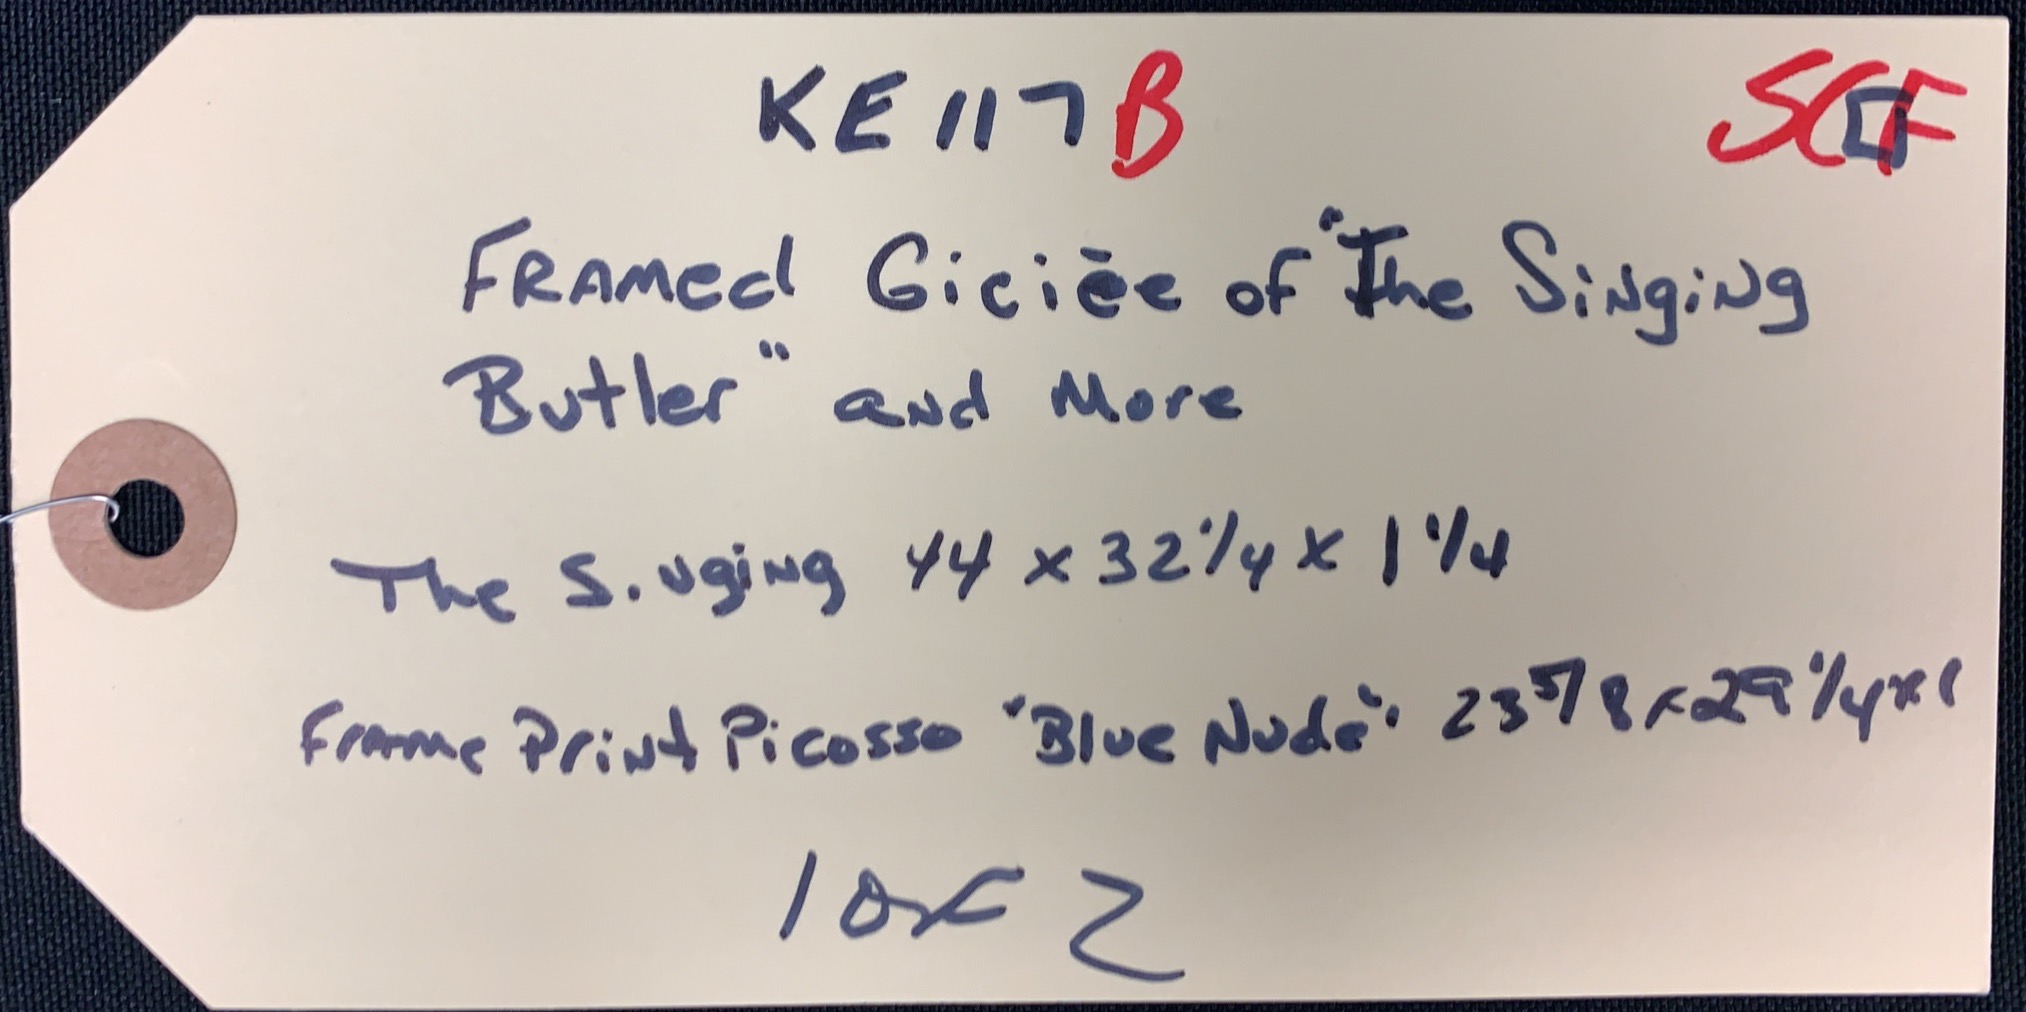 KE117B SCF
FRAMed Giciēe of "The Singing
Butler" and More
The S.nging 44 x 32 1/4 x 1 1/4
Frame Print Picosso "Blue Nude" 23 5/8 x 29 1/4 x 1
1 of 2